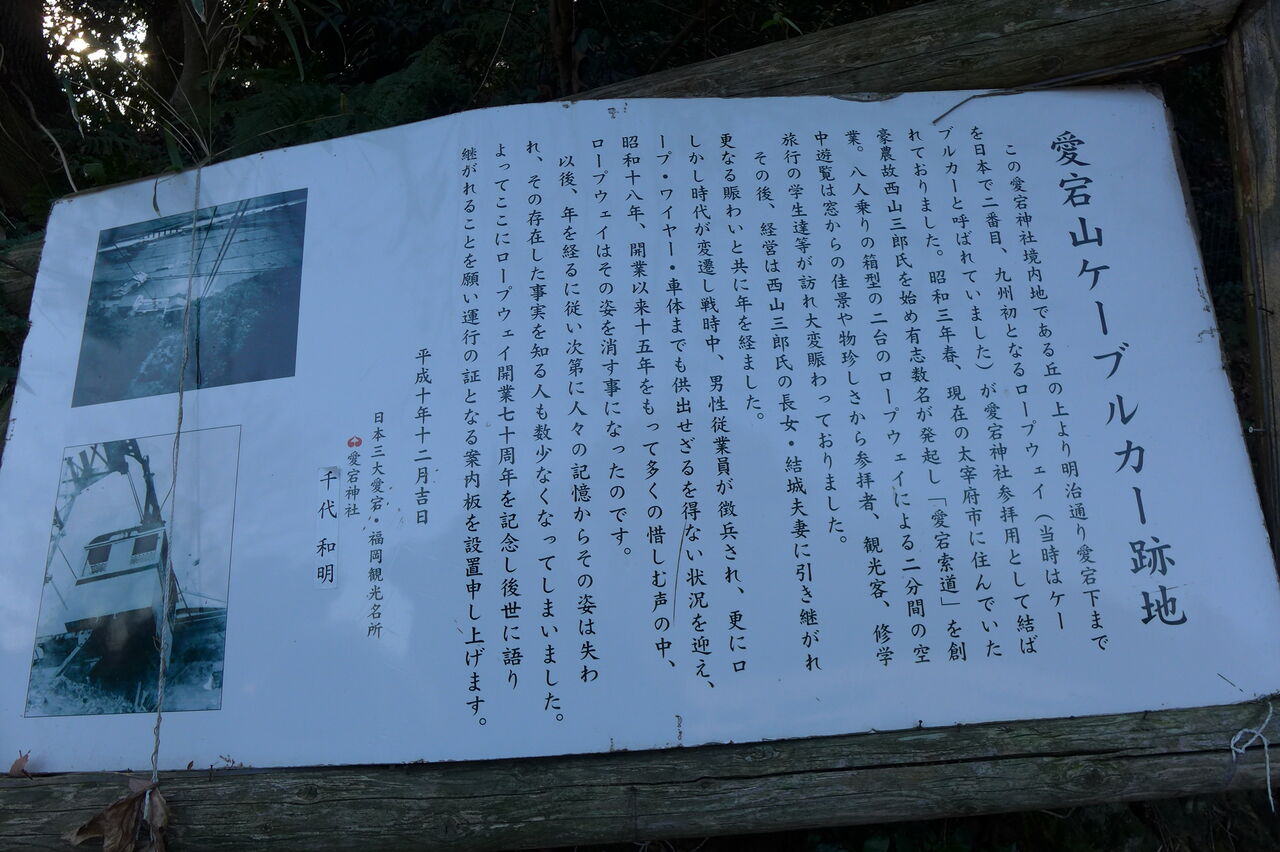 愛宕山ケーブルカー跡地
この愛宕神社境内地である丘の上より明治通り愛宕下まで
を日本で二番目、九州初となるロープウェイ（当時はケー
ブルカーと呼ばれていました）が愛宕神社参拝用として結ば
れておりました。昭和三年春、現在の太宰府市に住んでいた
豪農故西山三郎氏を始め有志数名が発起し「愛宕索道」を創
業。八人乗りの箱型の二台のロープウェイによる二分間の空
中遊覧は窓からの佳景や物珍しさから参拝者、観光客、修学
旅行の学生達等が訪れ大変賑わっておりました。
その後、経営は西山三郎氏の長女・結城夫妻に引き継がれ
更なる賑わいと共に年を経ました。
しかし時代が変遷し戦時中、男性従業員が徴兵され、更にロ
ープ・ワイヤー・車体までも供出せざるを得ない状況を迎え、
昭和十八年、開業以来十五年をもって多くの惜しむ声の中、
ロープウェイはその姿を消す事になったのです。
以後、年を経るに従い次第に人々の記憶からその姿は失わ
れ、その存在した事実を知る人も数少なくなってしまいました。
よってここにロープウェイ開業七十周年を記念し後世に語り
継がれることを願い運行の証となる案内板を設置申し上げます。
平成十年十二月吉日
日本三大愛宕・福岡観光名所
愛宕神社
千代 和明